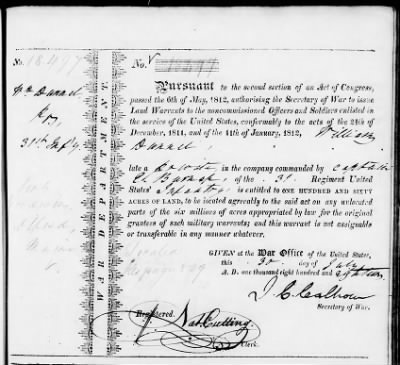 No. 18497
No.
Wm Dunnel
31st Infy.
WAR DEPARTMENT.
Pursuant to the second section of an Act of Congress,
passed the 6th of May, 1812, authorising the Secretary of War to issue
Land Warrants to the noncommissioned Officers and Soldiers enlisted in
the service of the United States, conformably to the acts of the 24th of
December, 1811, and of the 11th of January, 1812, William
Dunnel,
late a in the company commanded by Captain
of the 31. Regiment United
States' Infantry, is entitled to ONE HUNDRED AND SIXTY
ACRES OF LAND, to be located agreeably to the said act on any unlocated
parts of the six millions of acres appropriated by law for the original
grantees of such military warrants; and this warrant is not assignable
or transferable in any manner whatever.
GIVEN at the War Office of the United States,
this 30 day of July
A. D. one thousand eight hundred and eighteen
J. C. Calhoun
Secretary of War.
Registered.
Nat. Cutting.
Clerk.